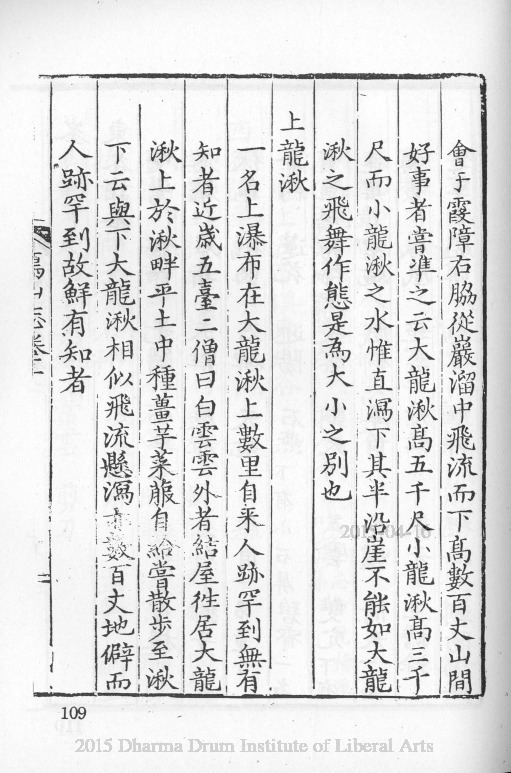 會于霞障右脇從巖溜中飛流而下高數百丈山間
好事者嘗準之云大龍湫高五千尺小龍湫高三千
尺而小龍湫之水惟直瀉下其半沿崖不能如大龍
湫之飛舞作態是為大小之別也
上龍湫
一名上瀑布在大龍湫上數里自來人跡罕到無有
知者近歲五臺二僧曰白雲雲外者結屋徃居大龍
湫上於湫畔平土中種薑芋菜菔自給嘗散步至湫
下云與下大龍湫相似飛流懸瀉亦數百丈地僻而
人跡罕到故鮮有知者
山志卷
109
2015 Dharma Drum Institute of Liberal Arts